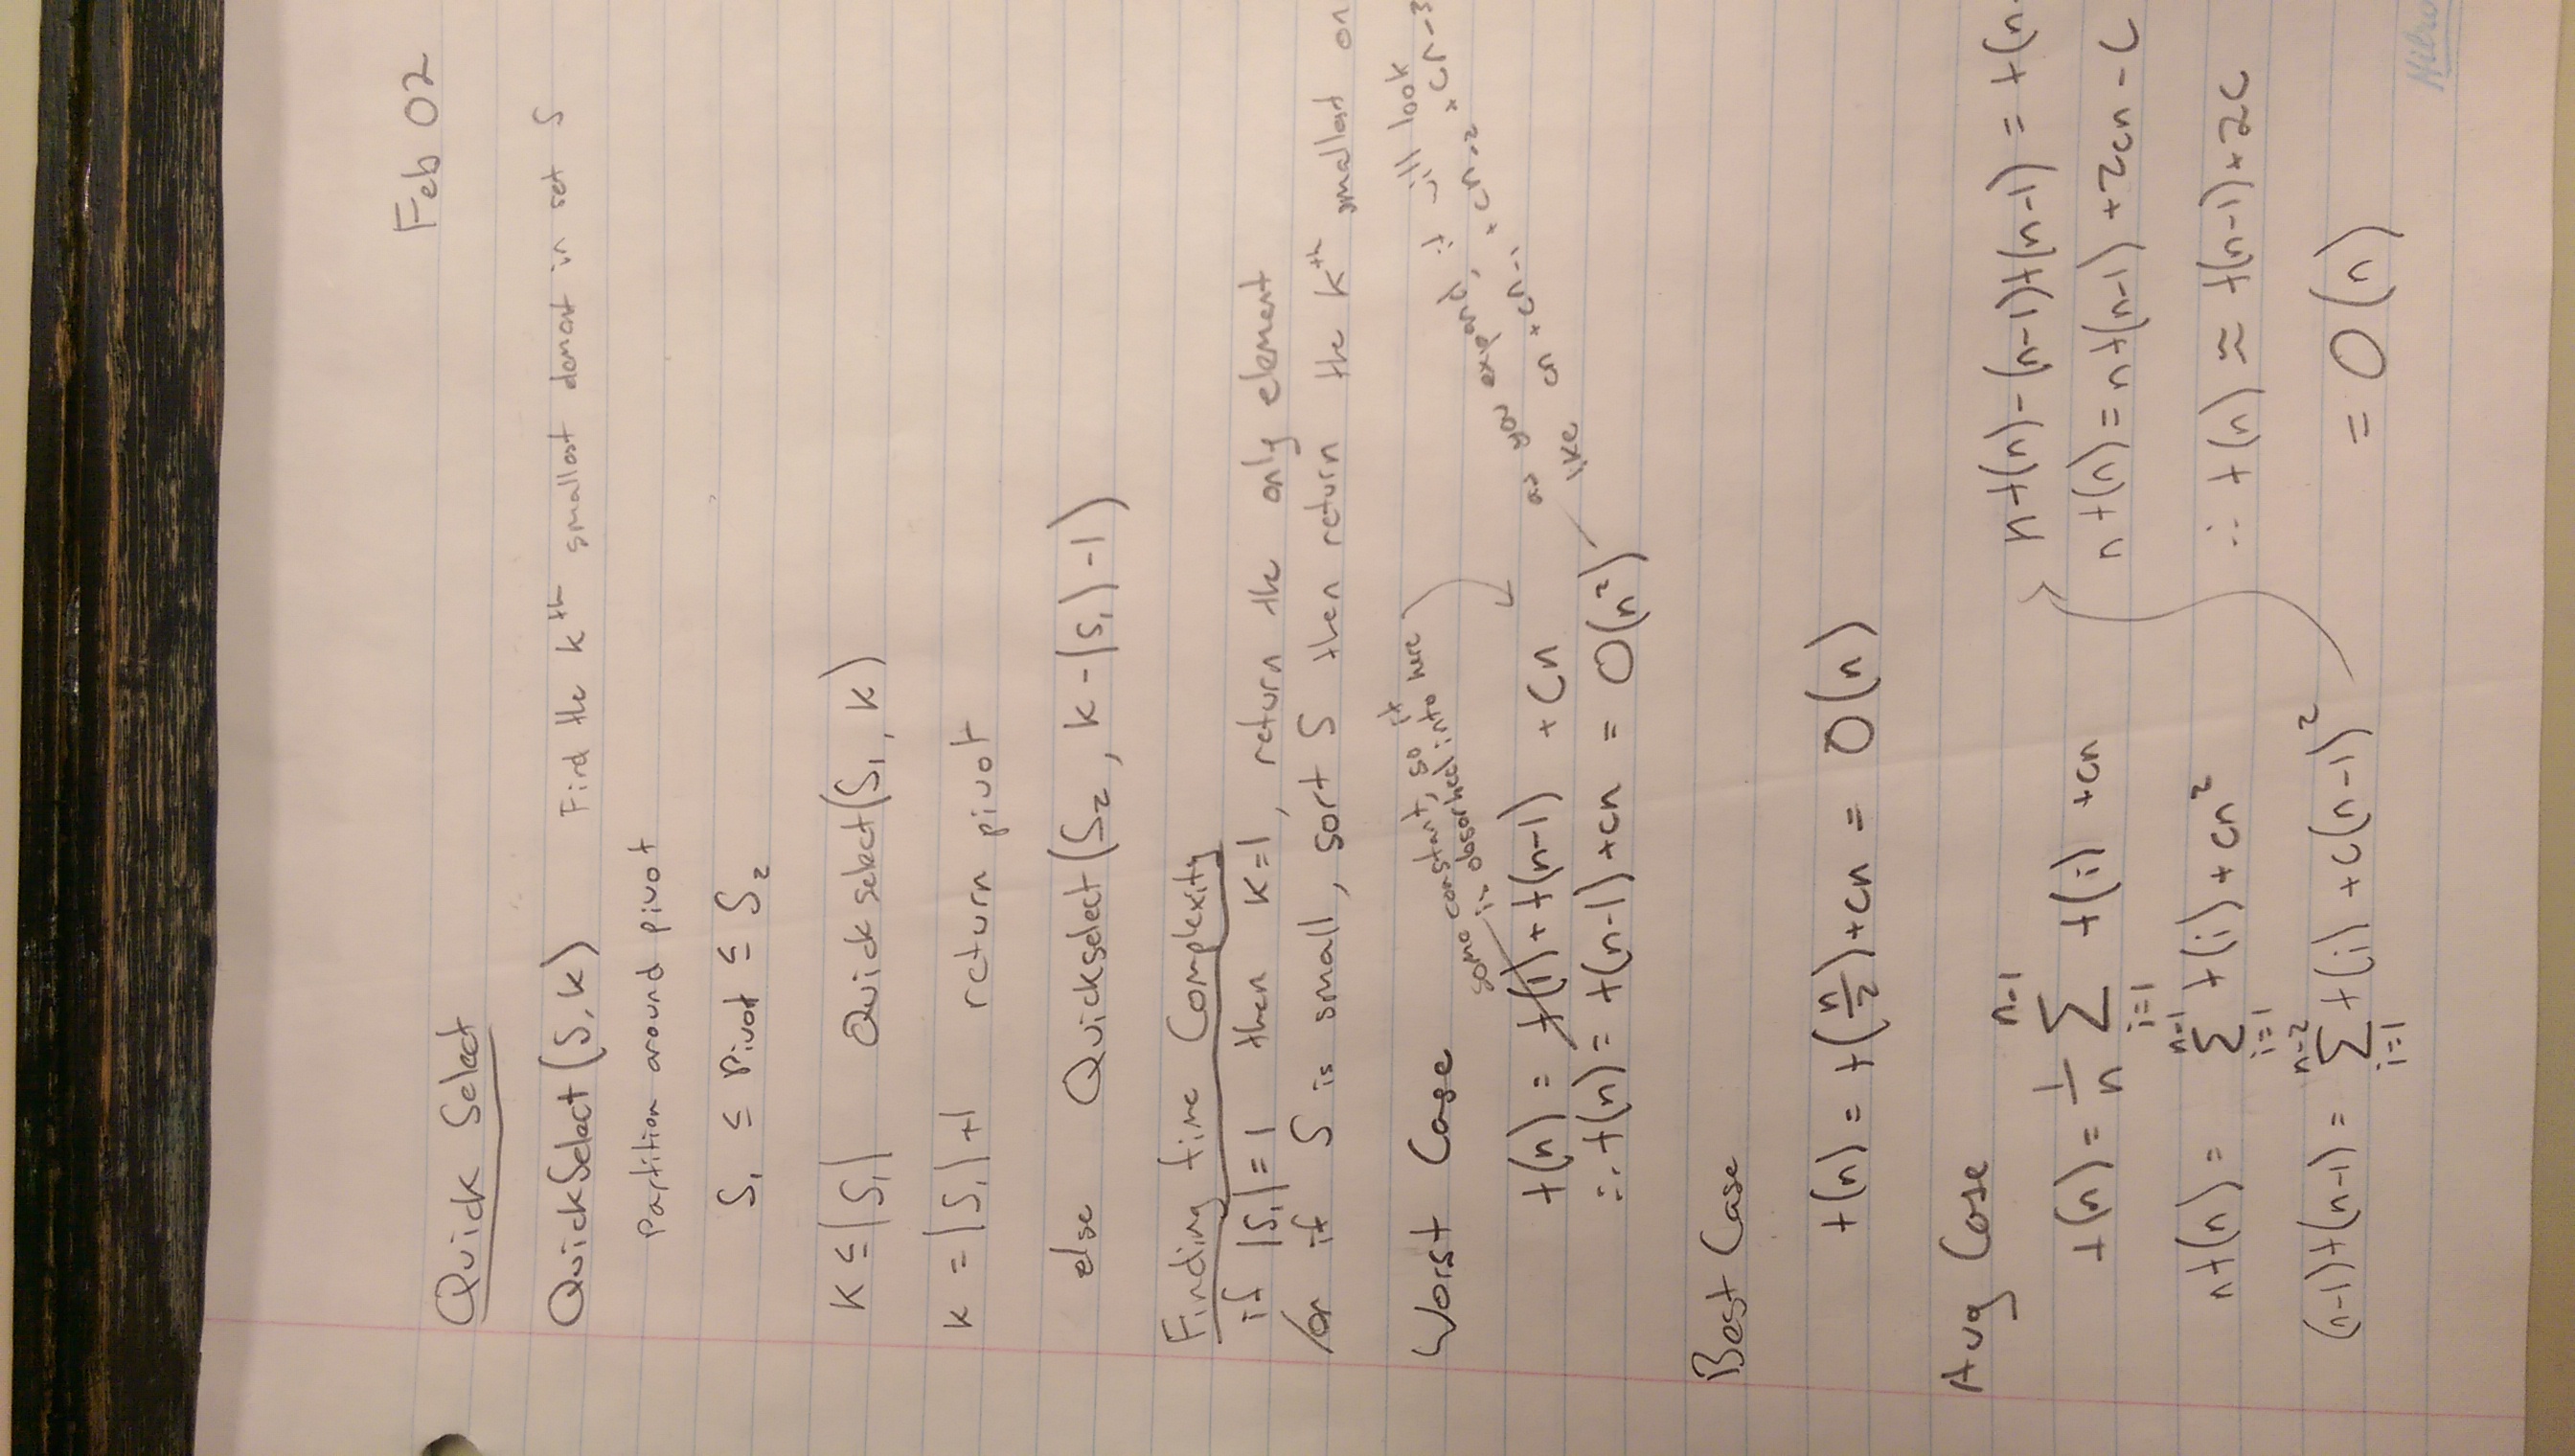 Feb 02
Quick Select
QuickSelect(S,k) Find the kth smallest element in set S
Partition around pivot
S₁ ≤ Pivot ≤ S₂
K ≤ |S₁| Quickselect(S₁, k)
k = |S₁|+1 return pivot
else Quickselect(S₂, k-|S₁|-1)
Finding time Complexity
if |S| = 1 then k=1, return the only element
/or if S is small, sort S then return the kth smallest
some constant, so it
is absorbed into here
as you expand, it will look
like cn + cn-1 + cn-2 + cn-3
Worst Case
t(n) = t(1) + t(n-1) + cn
∴ t(n) = t(n-1) + cn = O(n²)
Best Case
t(n) = t(n/2) + cn = O(n)
Avg Case
t(n) = 1/n ∑ i=1 n-1 t(i) + cn
nt(n) = ∑ i=1 n-1 t(i) + cn²
(n-1)t(n-1) = ∑ i=1 n-2 t(i) + c(n-1)²
nt(n) - (n-1)t(n-1) = t(n-
nt(n) = nt(n-1) + 2cn - c
∴ t(n) ≈ t(n-1) + 2c
= O(n)